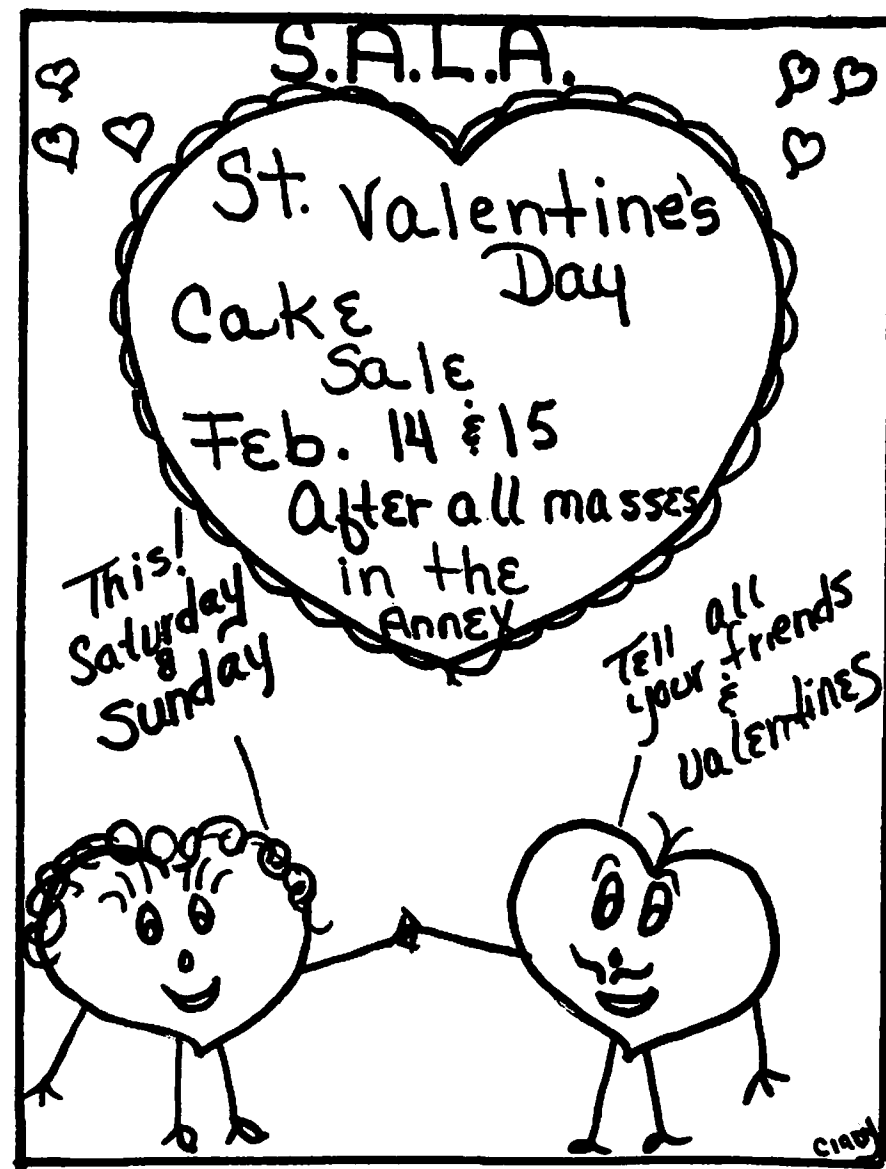 S.A.L.A.
St. Valentine's
Day
Cake
Sale
Feb. 14 & 15
After all masses
in the
Annex
This!
Saturday
&
Sunday
Tell all
your friends
&
valentines
Cindy